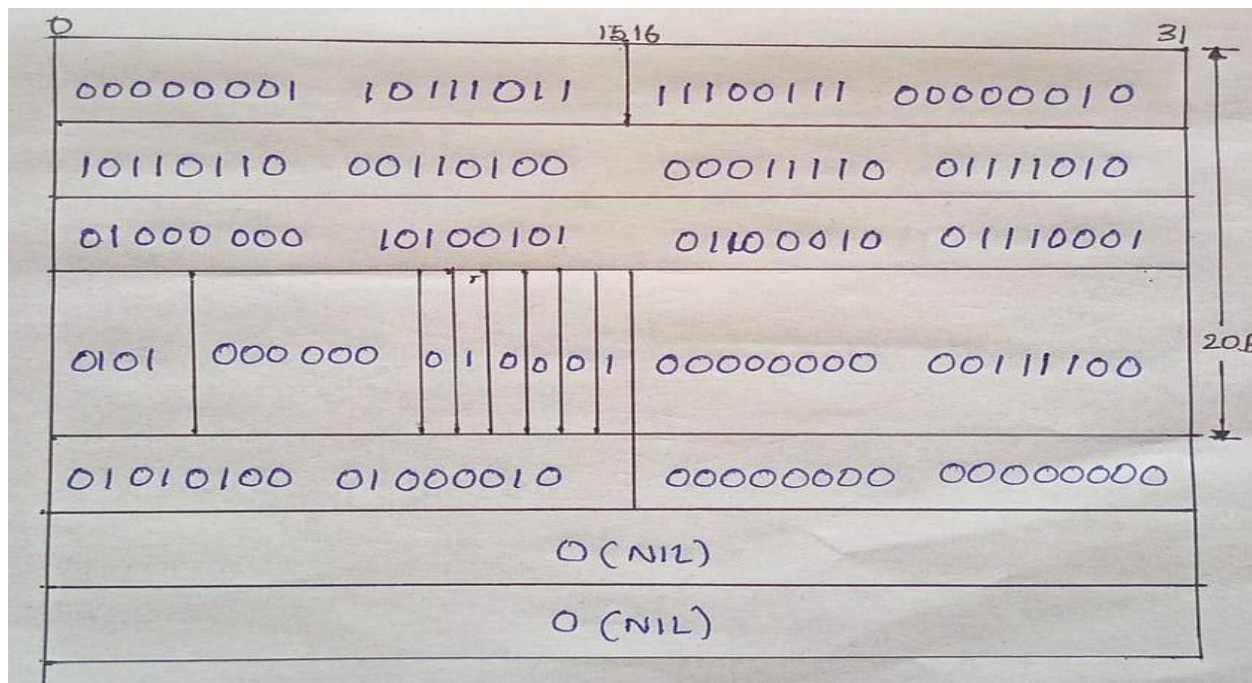 0 15 16 31
00000001 10111011 11100111 00000010
10110110 00110100 00011110 01111010
01000 000 10100101 01100010 01110001
0101 000 000 0 1 0 0 0 1 00000000 00111100
01010100 01000010 00000000 00000000
0 (NIL)
0 (NIL)